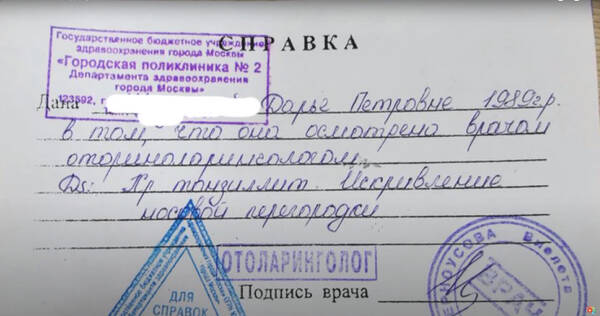 Государственное бюджетное учреждение
здравоохранения города Москвы
«Городская поликлиника № 2
Департамента здравоохранения
города Москвы»
123592, г.
СПРАВКА
Дана Дарье Петровне 1989г.р.
в том, что она осмотрена врачом
оториноларингологом.
Ds: Хр тонзиллит. Искривление
носовой перегородки
ОТОЛАРИНГОЛОГ
Подпись врача
ДЛЯ
СПРАВОК
Виолета
ВРАЧ